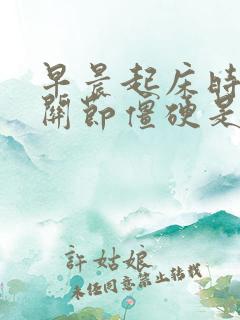 早晨起床時
關節僵硬是
許姑娘
未經同意禁止转载